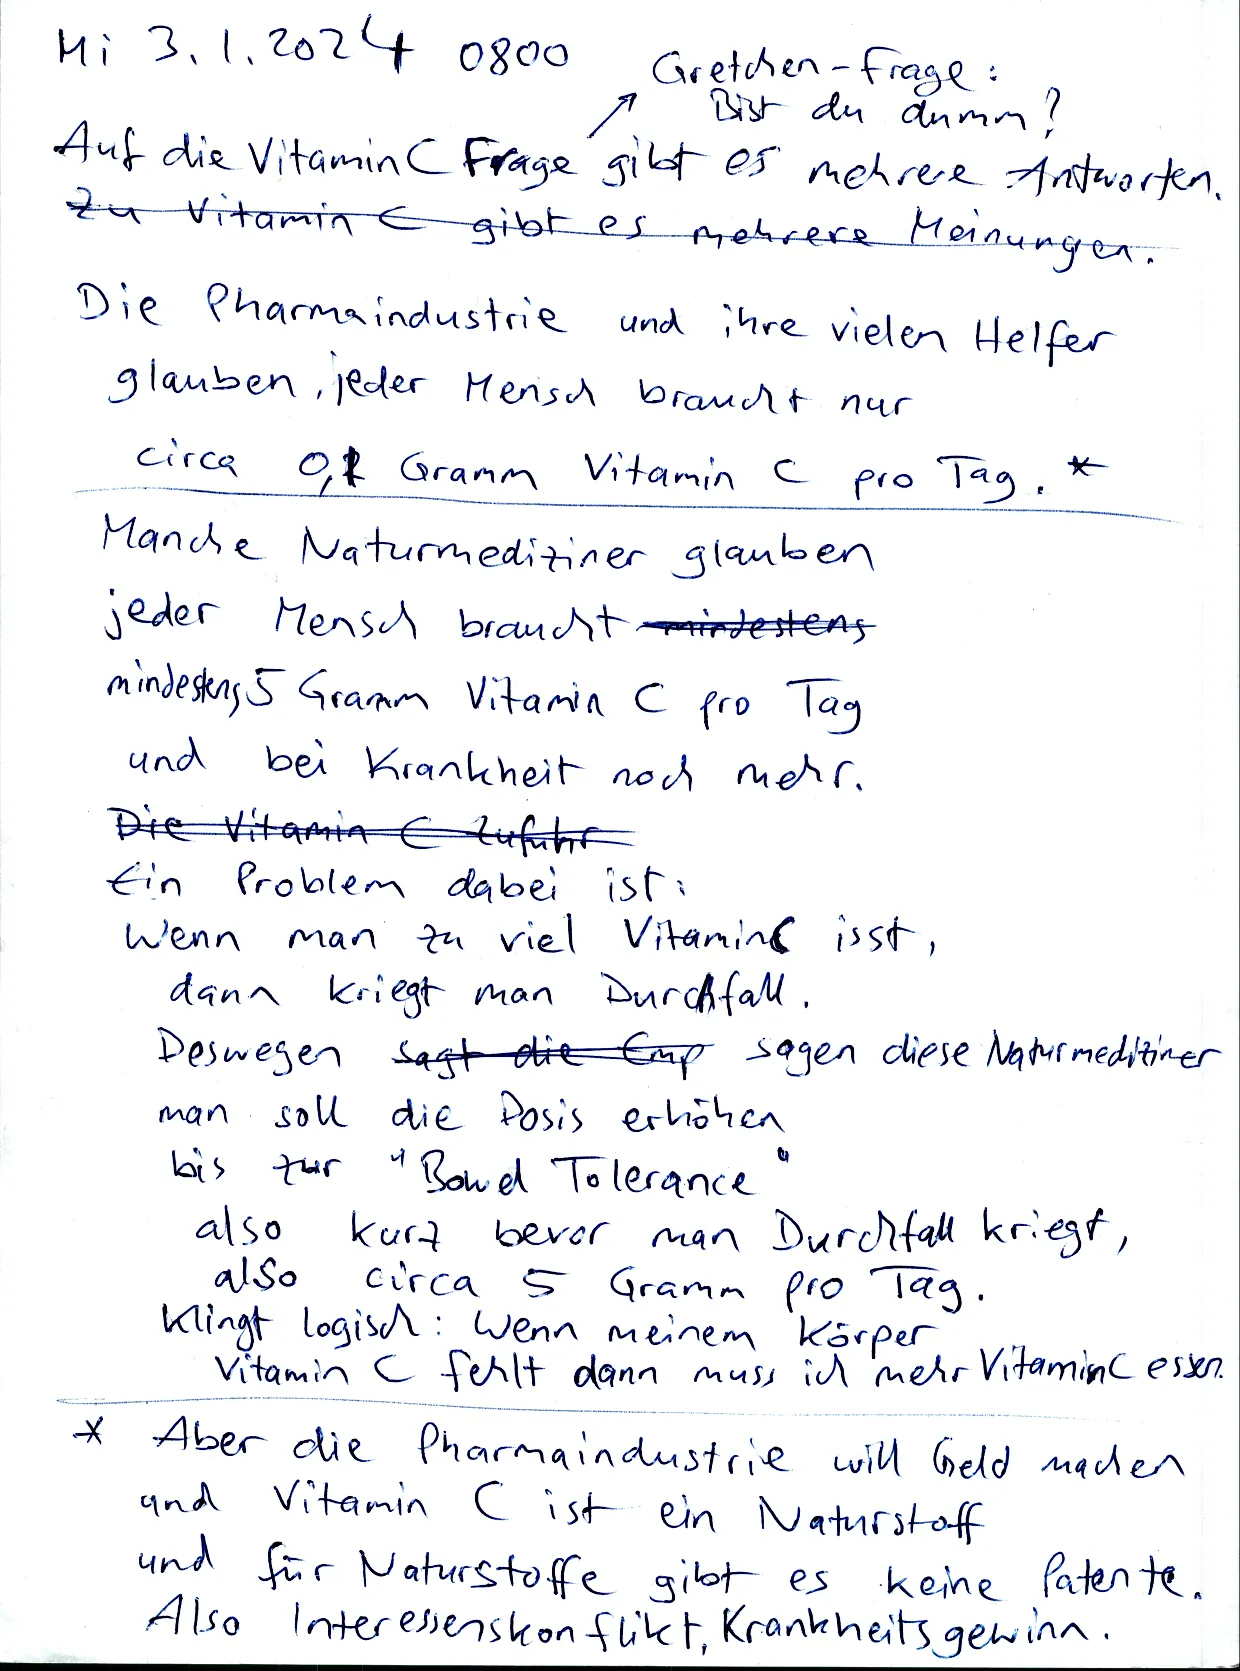 Mi 3.1.2024 0800
Gretchen-Frage:
Bist du dumm?
Auf die Vitamin C Frage gibt es mehrere Antworten.
Zu Vitamin C gibt es mehrere Meinungen.
Die Pharmaindustrie und ihre vielen Helfer
glauben, jeder Mensch braucht nur
circa 0,1 Gramm Vitamin C pro Tag. *
Manche Naturmediziner glauben
jeder Mensch braucht mindestens
mindestens 5 Gramm Vitamin C pro Tag
und bei Krankheit noch mehr.
Die Vitamin C Zufuhr
Ein Problem dabei ist:
Wenn man zu viel Vitamin C isst,
dann kriegt man Durchfall.
Deswegen sagt die Emp sagen diese Naturmediziner
man soll die Dosis erhöhen
bis zur "Bowel Tolerance"
also kurz bevor man Durchfall kriegt,
also circa 5 Gramm pro Tag.
Klingt logisch: Wenn meinem Körper
Vitamin C fehlt dann muss ich mehr Vitamin C essen.
* Aber die Pharmaindustrie will Geld machen
und Vitamin C ist ein Naturstoff
und für Naturstoffe gibt es keine Patente.
Also Interessenskonflikt, Krankheitsgewinn.